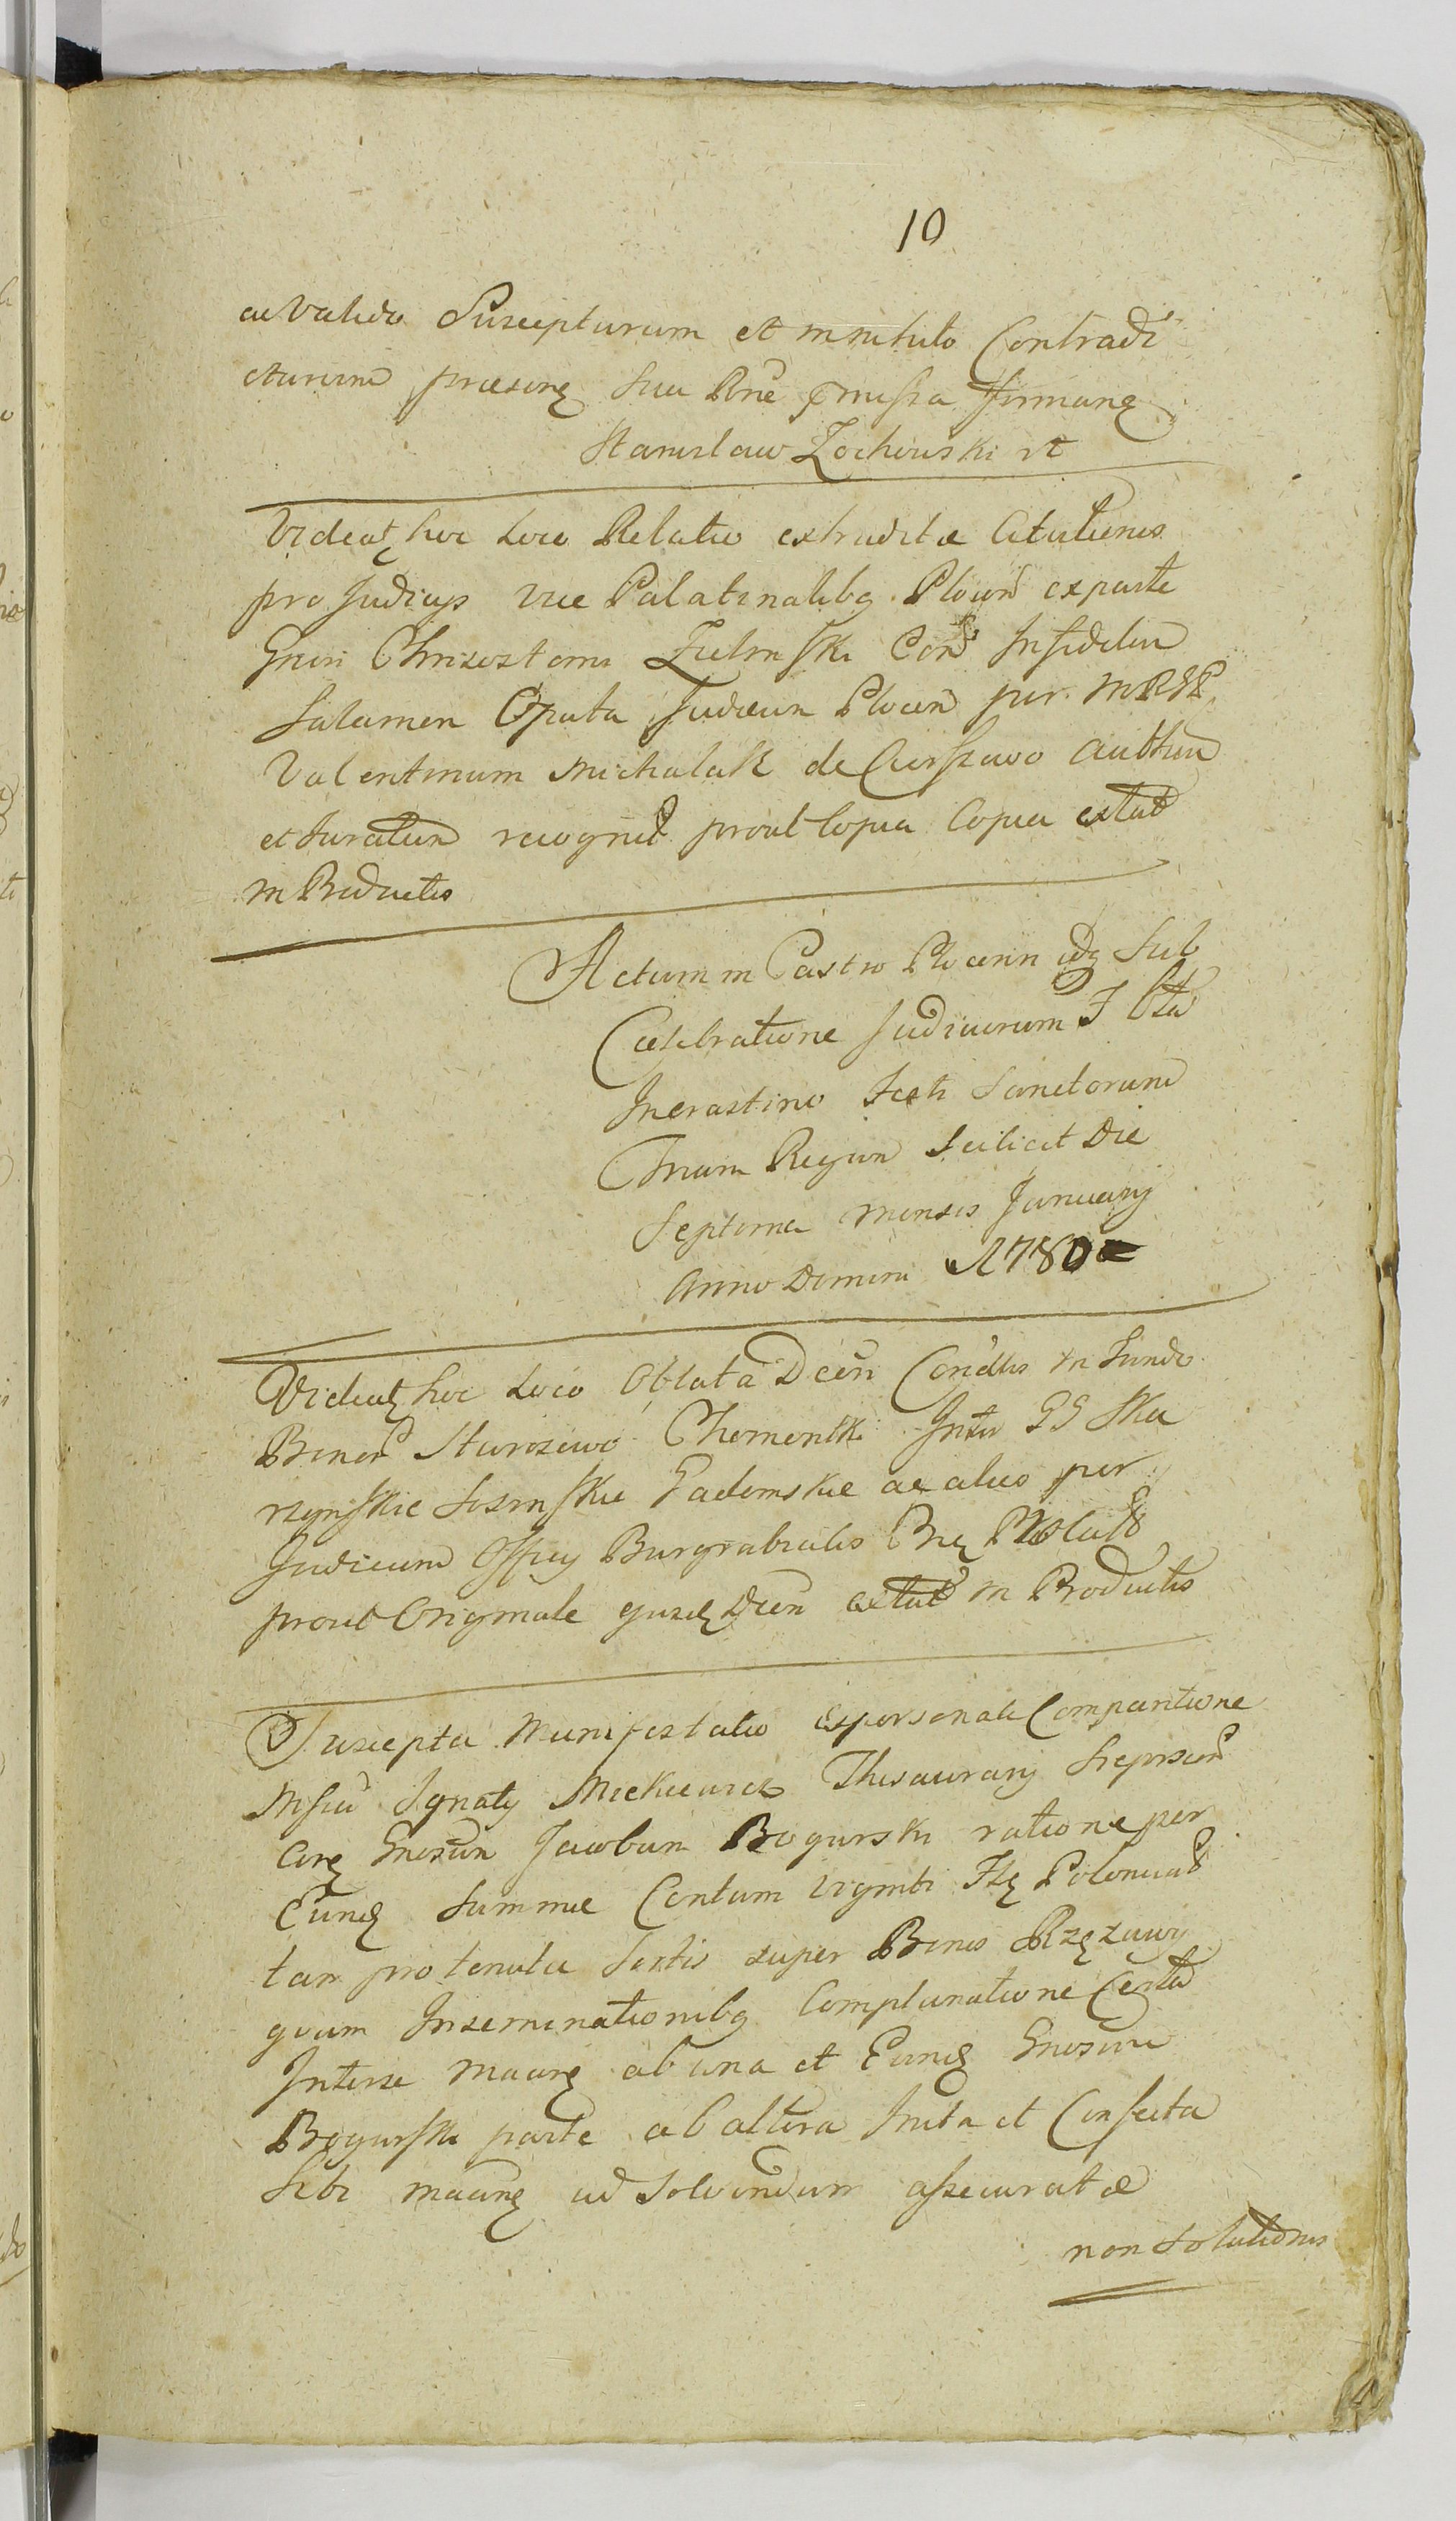 10
ac Valide Suscepturum et in nihilo Contradi
cturum praesenq sua Rne pmissa firmanq
Stanislaw Zochowski rt
Videatq hoc loco Relatio extraditae Citationis
pro Judicys Vice Palatinalibq Plocen exparte
Gnsi Chrisostomi Zielinski Con Infidelem
Salamon Opata Judaeum Plocen per
Valentinum Michalak de authen
et Juratum recognit prout Copia Copia extat
in Productis
Actum in Castro Plocenn idq Sub
Caelebratione Judiciorum
Incrastino Festi Sanctorum
Trium Regum Scilicet Die
Septima mensis January
Anno Domini 1780
Videatq hoc Loco Oblata Dcen Condlis in Fundo
Bonor Starozewo Chomentki Inter GG Ska
rzynskie Sosinskie Gadomskie ac alios per
Judicium Officy Burgrabialis
prout Originale ejusdq Dcen extat in Productis
Suscepta Manifestatio Expersonali Comparitione
Ignaty Mickiewicz Thesaurary
Cirq Gnosum Jacobum Bogurski ratione per
Eundq Summae Centum viginti Flq Polonical
tam pro tenuta Sortis super Bonis
quam Inseminationibq Complanatione Certa
Interse ab una et Eundq Gnosum
Bogurski parte ab altera Inita et Confecta
Sibi ad Solvendum assecuratae
non Solutionis